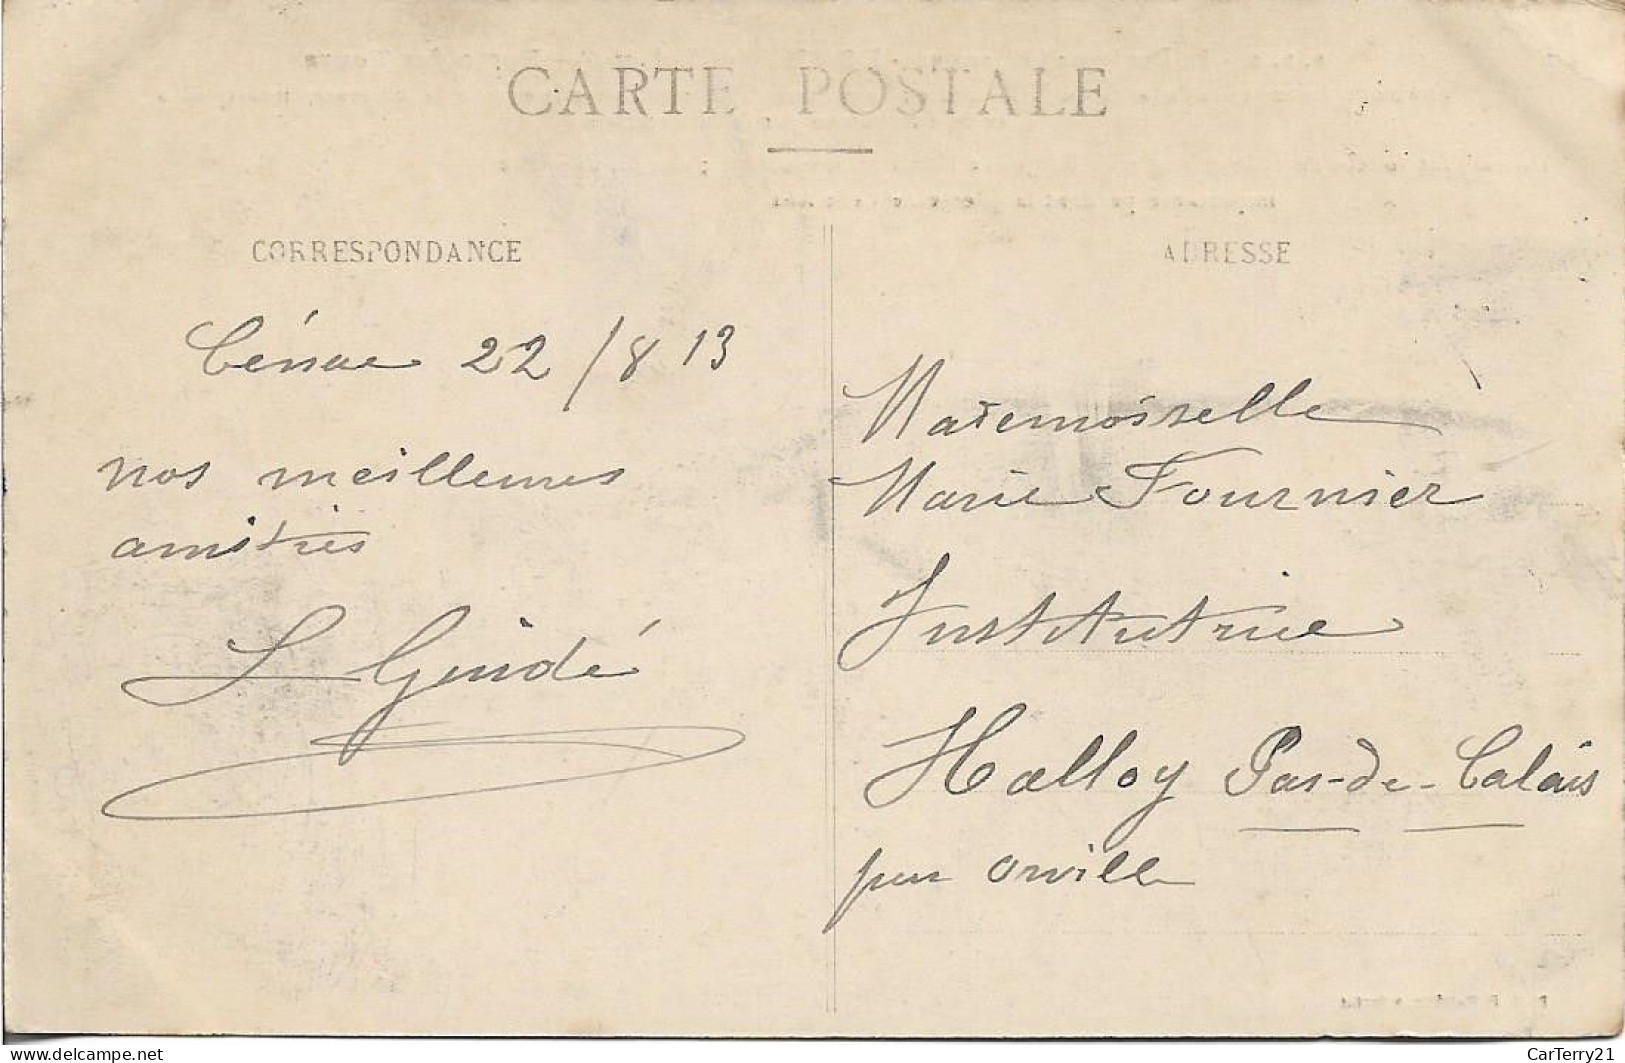 CARTE POSTALE
CORRESPONDANCE
Cénac 22/8 13
nos meilleures
amitiés
L Guidé
ADRESSE
Mademoiselle
Marie Fournier
Institutrice
Halloy Pas-de-Calais
par Orville
delcampe.net
CarTerry21